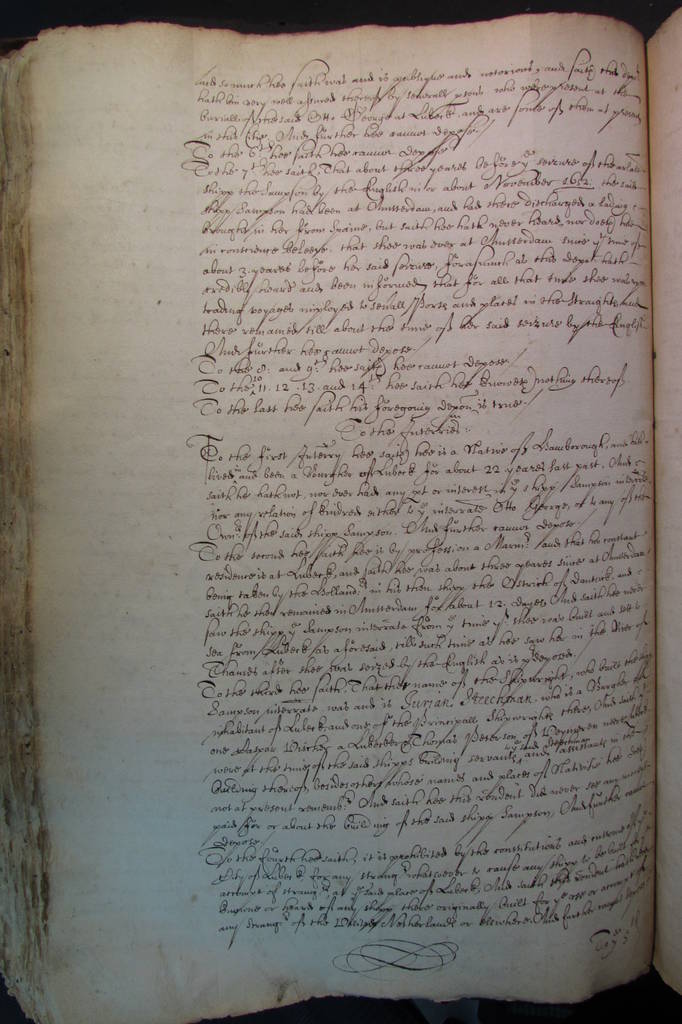 and soe much hee saith was and is publique and notorious, and saith this depot
hath bin very well assured thereof by severall psons who were present at the
buriall of the said Otto George at Lubeck, and are some of them at present
in this City. And further hee cannot depose.
To the 6th hee saith hee cannot depose.
To the 7th hee saith, That about three yeares before ye seizure of the arlate
shipp the Sampson by the English in or about November 1652, the said
shipp Sampson had been at Amsterdam, and had there discharged a lading
brought in her from Spaine, but saith hee hath never heard, nor doeth hee
in conscience beleeve, that shee was ever at Amsterdam since ye time of
about 3 yeares before her said seizure, forasmuch as this depot hath
credibly heard and been informed that for all that time shee was upon
trading voyages imployed to severall Ports and places in the Straights, and
there remained till about the time of her said seizure by the English
And further hee cannot depose.
To the 8: and 9th hee saith hee cannot depose.
To the 10 11. 12. 13. and 14th hee saith hee knoweth nothing thereof
To the last hee saith his foregoing depon is true.
To the Interries:
To the first Interry hee saith hee is a Native of Hamborough, and hath
lived in and been a Burgher of Lubeck for about 22 yeares last past. And
saith he hath not, nor ever had any pt or interest in ye shipp Sampson interrate
nor any relation of kindred either to ye interrate Otto George, or to any of the
Ownrs of the said shipp Sampson. And further cannot depose.
To the second hee saith hee is by profession a Marinr and that his constant
residence is at Lubeck, and saith hee was about three yeares since at Amsterdam
being taken by the Hollandrs in his then shipp the Ostrich of Dantsick, and
saith he then remained in Amsterdam for about 12 dayes, And saith hee never
saw the shipp ye Sampson interrate from ye time yt shee was built and set to
sea from Lubeck as aforesaid, till such time as hee saw her in the River of
Thames after shee was seized by the English as is pdeposed.
To the third hee saith, That the name of the Shipwright, who built the shipp
Sampson interrate was and is Jurian Breckman, who is a Burgher and
inhabitant of Lubeck, and one of the Principall Shipwrights there, And saith yt
one Caspar a Lubecker & Thomas Peterson of
were at the time of the said shipps building servants and assistants in the
building thereof, besides others whose names and places of Nativitie hee doth
not at present remembr. And saith hee this rendent did never see any moneys
paid for or about the building of the said shipp Sampson, And further cannot
depose.
To the fourth hee saith, it is prohibited by the constitutions and customes of ye
City of Lubeck for any strangr whatsoever to cause any shipp to be built for
account of strangrs at ye said place of Lubeck, And saith this rendent hath not
knowne or heard of any shipp there originally built for ye use or accompt of
any strangr of the United Netherlands or elsewhere. And further cannot depose
To ye 5th